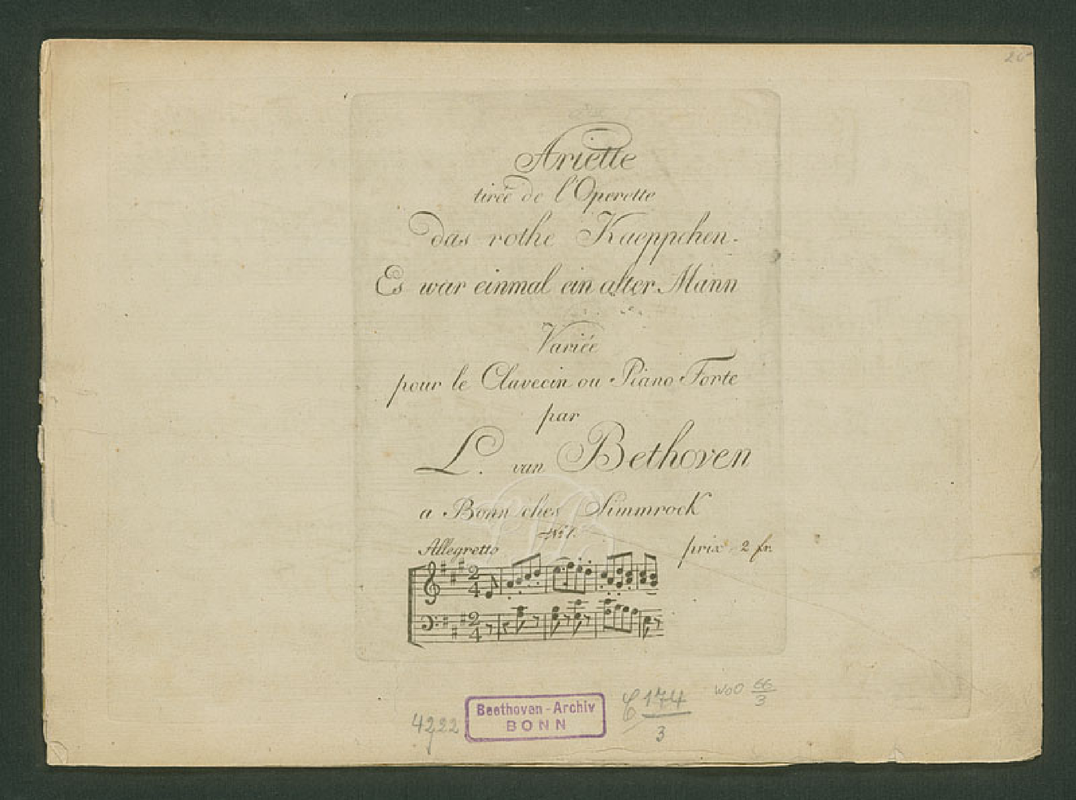 20
Ariette
tirée de l'Operette
das rothe Kaeppchen.
Es war einmal ein alter Mann
Variée
pour le Clavecin ou Piano Forte
par
L. van Bethoven
a Bonn ches Simmrock
No 1.
Allegretto
prix 2 fr.
2
4
2
4
4222
Beethoven-Archiv
BONN
C 174
3
WoO 66
3